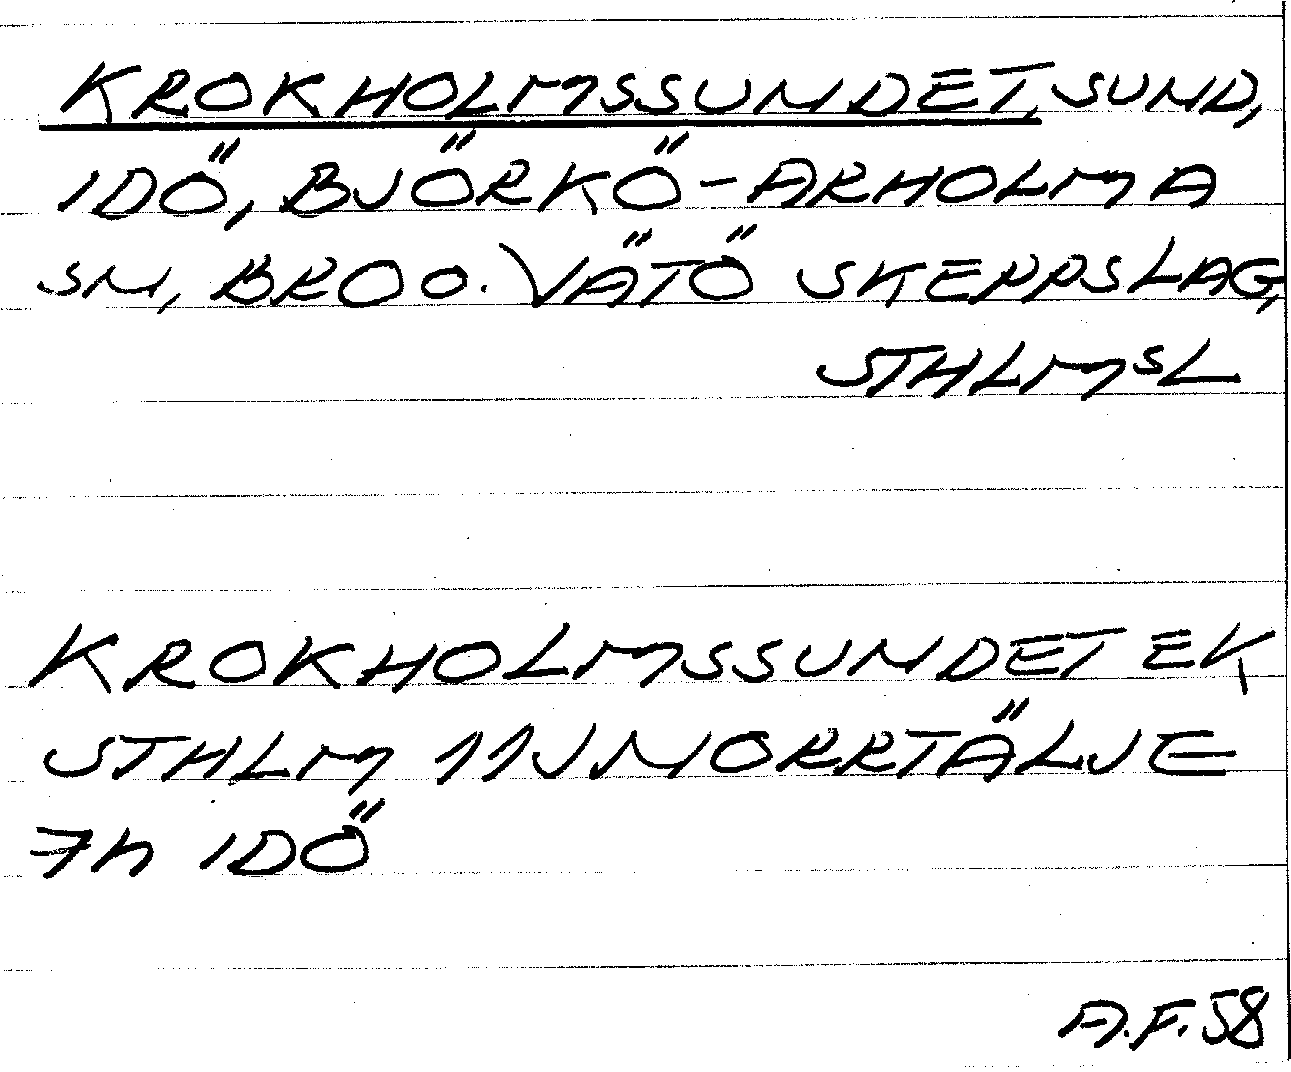 KROKHOLMSSUNDET, SUND,
IDÖ, BJÖRKÖ-ARHOLMA
SN, BRO O. VÄTÖ SKEPPSLAG,
STHLMSL
KROKHOLMSSUNDET EK
STHLM 11J NORRTÄLJE
7h IDÖ
A.F. 58